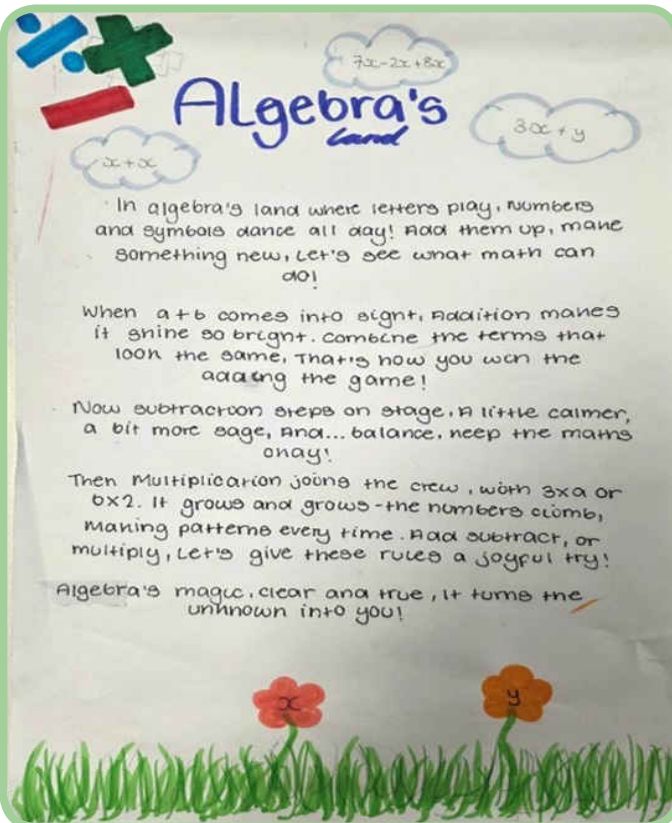 7x-2x+8x
ALgebra's
Land
3x+y
x+x
In algebra's land where letters play, Numbers
and symbols dance all day! Add them up, make
something new, Let's see what math can
do!
When a+b comes into sight, Addition makes
it shine so bright. combine the terms that
look the same, That's how you win the
adding the game!
Now subtraction steps on stage, A little calmer,
a bit more sage, And... balance, keep the maths
okay!
Then Multiplication joins the crew, with 3xa or
bx2. It grows and grows - the numbers climb,
Making patterns every time. Add subtract, or
multiply, Let's give these rules a joyful try!
Algebra's magic, clear and true, it turns the
unknown into you!
x
y